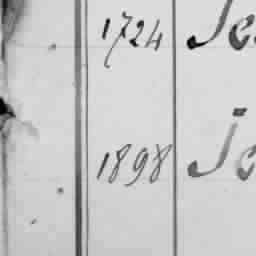 1724 Je
1898 Je